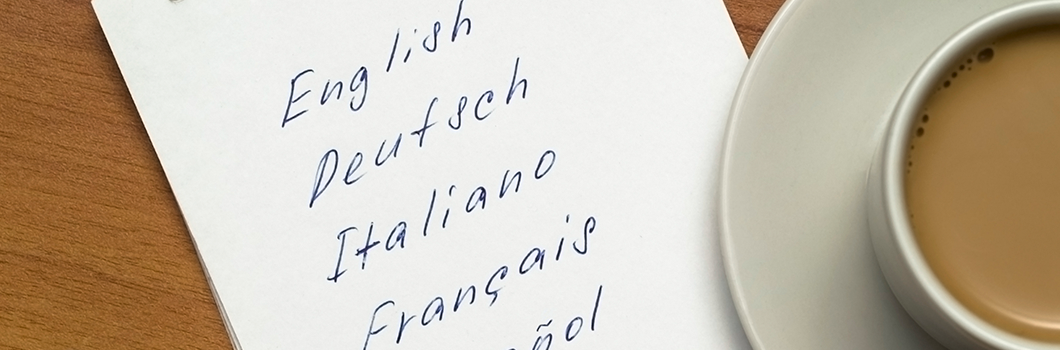 English
Deutsch
Italiano
Français